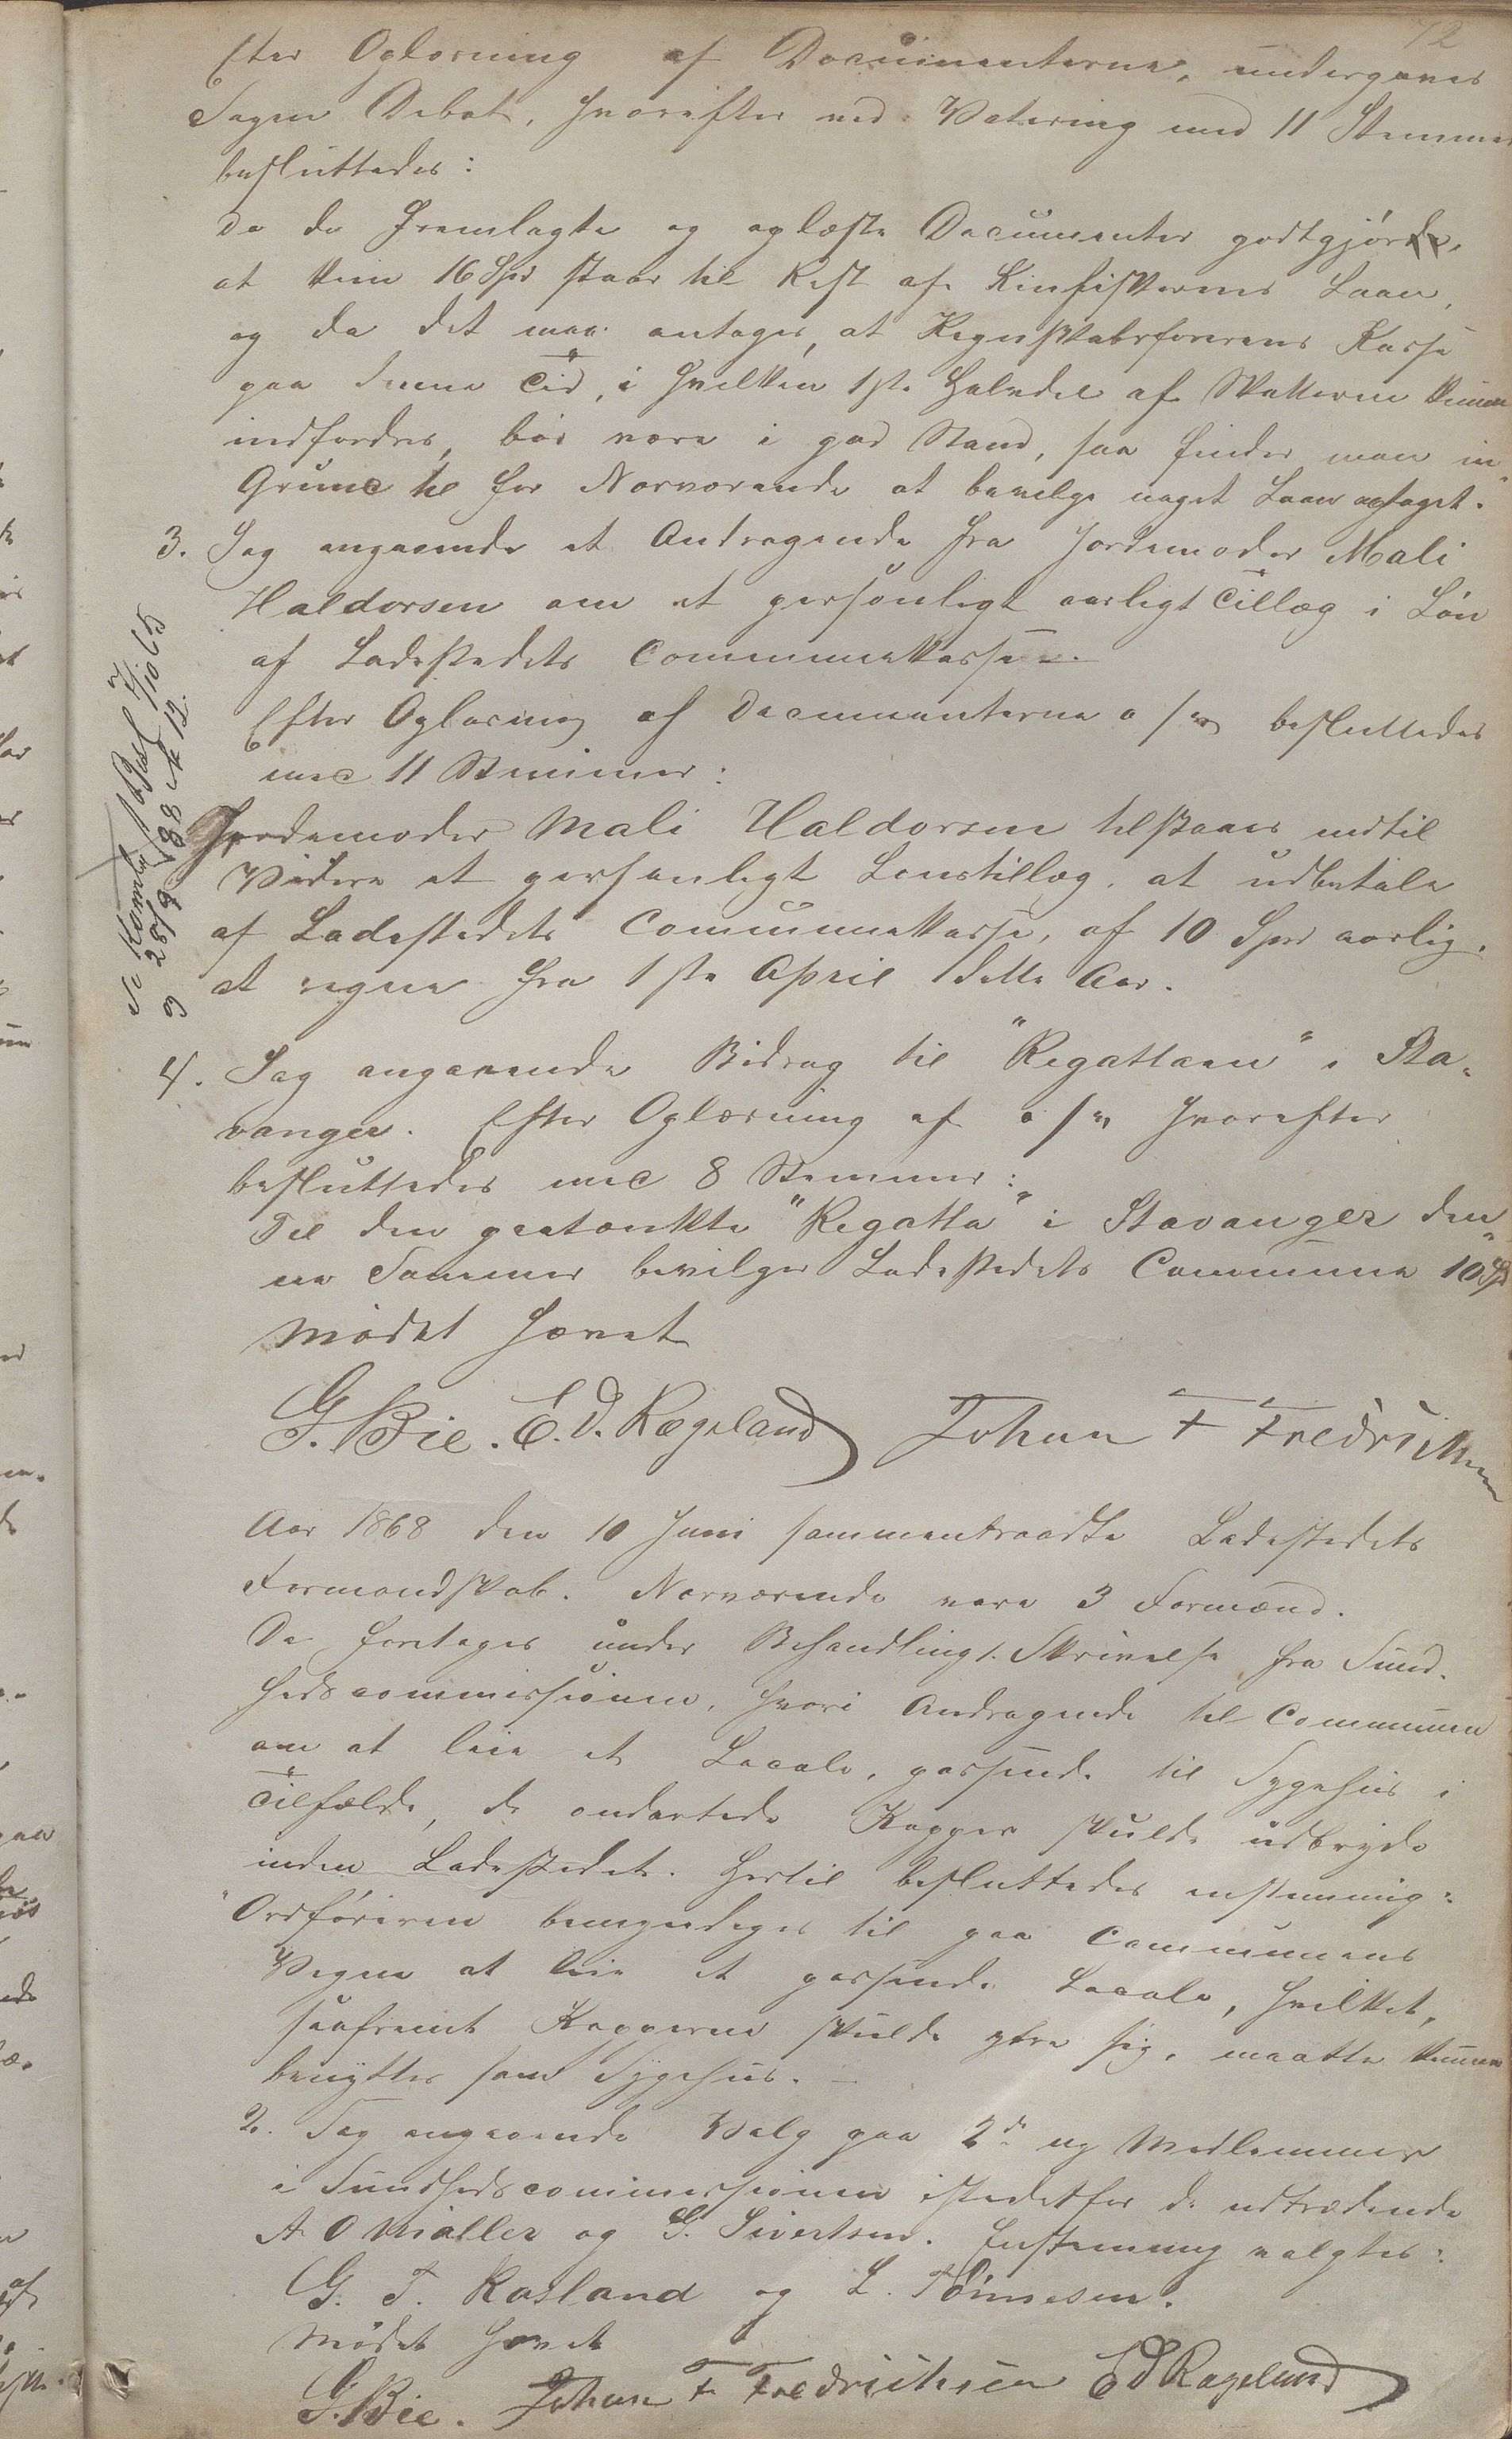 72
Efter Oplæsning af Documenterne, undergaves
Sagen Debat, hvorefter ved Votering med 11 Stemmer
besluttedes:
da de fremlagte og oplæste Documenter godtgjør,
at kun 16 Spd staar til Rest af Kinfiskernes Laan,
og da det maa antages, at Regnskabsførerens Kasse
paa denne Tid, i hvilken 1ste Halvdel af Skatterne kunne
indfordres, bør være i god Stand, saa finder man in-
Grund til for Nærværende at bevilge noget Laan optaget."
3. Sag angaaende et Andragende fra Jordemoder Mali
Haldorsen om et personligt aarligt Tillæg i Løn
af Ladestedets Communekasse.
Efter Oplæsning af Documenterne o/s besluttedes
med 11 Stemmer:
Jordemoder Mali Haldorsen tilstaaes indtil
Videre et personligt Lønstillæg, at udbetale
af Ladestedets Communekasse, af 10 Spd aarlig,
at regne fra 1ste April dette Aar.
4. Sag angaaende Bidrag til "Regattaen" i Sta-
vanger. Efter Oplæsning af o/s hvorefter
besluttedes med 8 Stemmer:
Til den paatænkte "Regatta" i Stavanger den-
ne Sommer bevilger Ladestedets Commune 10 Spd
Mødet hævet
G. Bie. E. D. Rægeland Johan F Fredrichsen
Aar 1868 den 10 Juni sammentraadte Ladestedets
Formandskab. Nærværende vare 3 Formænd.
Da foretages under Behandling 1. Skrivelse fra Sund-
hedscommissionen, hvori Andragende til Communen
om at leie et Locale, passende til Sygehus i
Tilfælde, de ondartede Kopper skulde udbryde
inden Ladestedet. Hertil besluttedes enstemmig:
"Ordføreren bemyndiges til paa Communens
Vegne at leie et passende Locale, hvilket,
saafremt Kopperne skulde ytre sig, maatte kunne
benyttes som Sygehus.
2. Sag angaaende Valg paa 2de ny Medlemmer
i Sundhedscommissionen istedetfor de udtrædende
A O Møller og G. Sivertsen. Enstemmig valgtes:
G. T. Rosland og L. Tønnesen.
Mødet hævet
G. Bie. Johan F Fredrichsen E D Rægeland